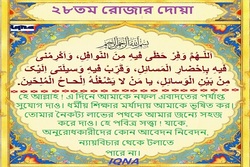 ২৮তম রোজার দোয়া
IQNA
بسم الله الرحمن الرحیم
اللَّهُمَّ وَفِّرْ حَظِّي فِيهِ مِنَ النَّوَافِلِ، وَأَكْرِمْنِي
فِيهِ بِإِحْضَارِ الْمَسَائِلِ، وَقَرِّبْ فِيهِ وَسِيلَتِي إِلَيْكَ
مِنْ بَيْنِ الْوَسَائِلِ، يَا مَنْ لَا يَشْغَلُهُ إِلْحَاحُ الْمُلِحِّينَ.
হে আল্লাহ ! এ দিনে আমাকে নফল এবাদতের পর্যাপ্ত
সুযোগ দাও। ধর্মীয় শিক্ষার মর্যাদায় আমাকে ভূষিত কর।
তোমার নৈকট্য লাভের পথকে আমার জন্যে সহজ
করে দাও। হে পবিত্র সত্ত্বা ! যাকে,
অনুরোধকারীদের কোন আবেদন নিবেদন,
ন্যায়বিচার থেকে টলাতে
পারে না।
IQNA